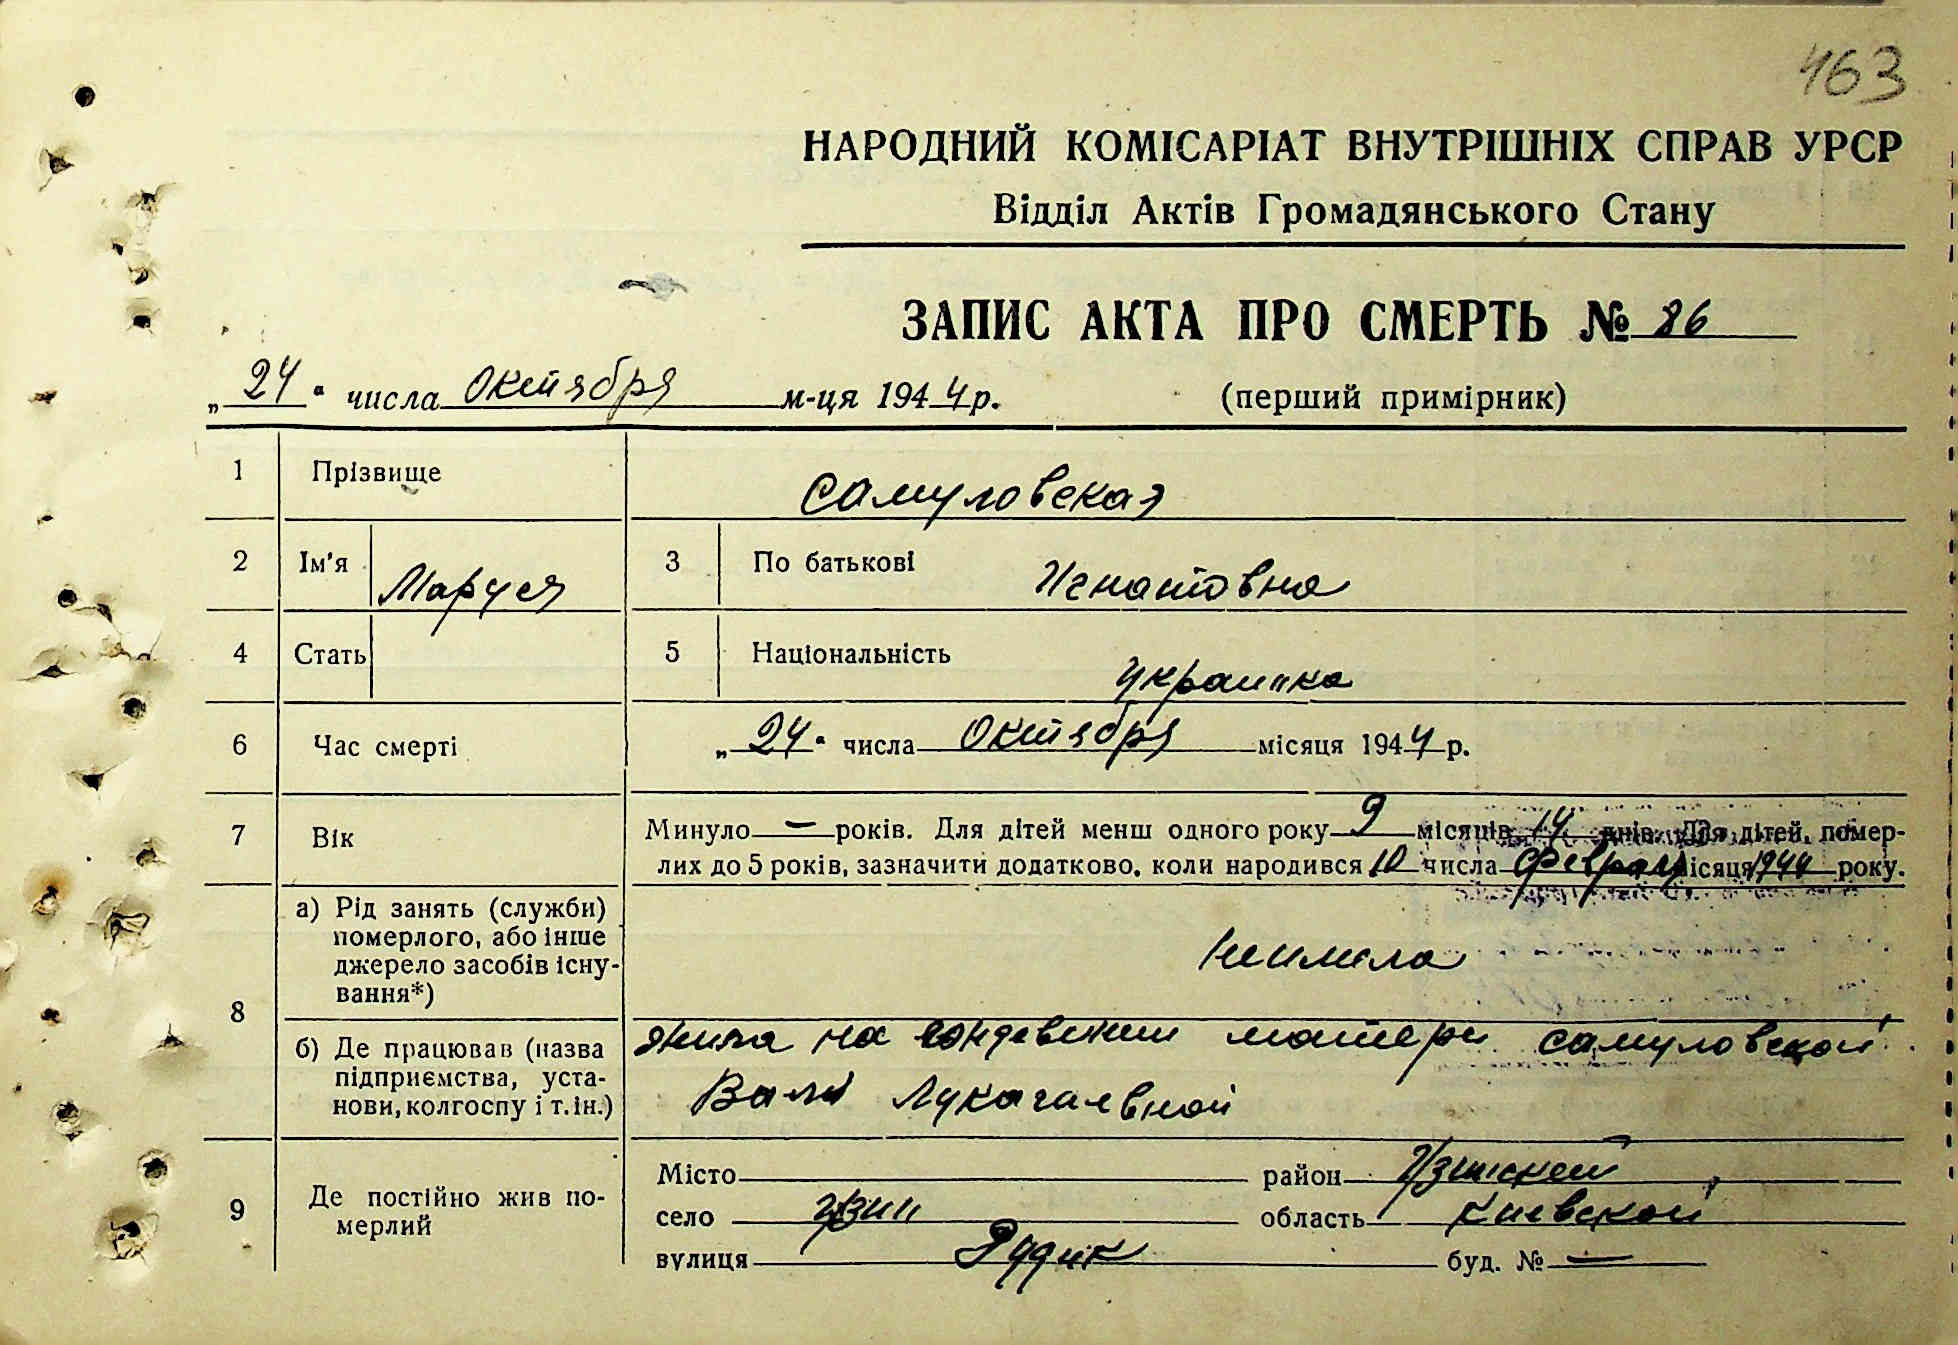 463
НАРОДНИЙ КОМІСАРІАТ ВНУТРІШНІХ СПРАВ УРСР
Відділ Актів Громадянського Стану
ЗАПИС АКТА ПРО СМЕРТЬ № 86
„24" числа Октября м-ця 1944 р. (перший примірник)
1 Прізвище Самуловская
2 Ім'я Маруся 3 По батькові Игнатовна
4 Стать 5 Національність украинка
6 Час смерті „24" числа Октября місяця 1944 р.
7 Вік Минуло — років. Для дітей менш одного року 9 місяців 14 днів. Для дітей, помер-
лих до 5 років, зазначити додатково, коли народився 10 числа февраля місяця 1944 року.
8 а) Рід занять (служби)
померлого, або інше
джерело засобів існу-
вання*)
б) Де працював (назва
підприємства, уста-
нови, колгоспу і т. ін.)
жила на иждевении матери Самуловской
9 Де постійно жив по-
мерлий
Місто район Узинский
село Узин область Киевской
вулиця буд. № —